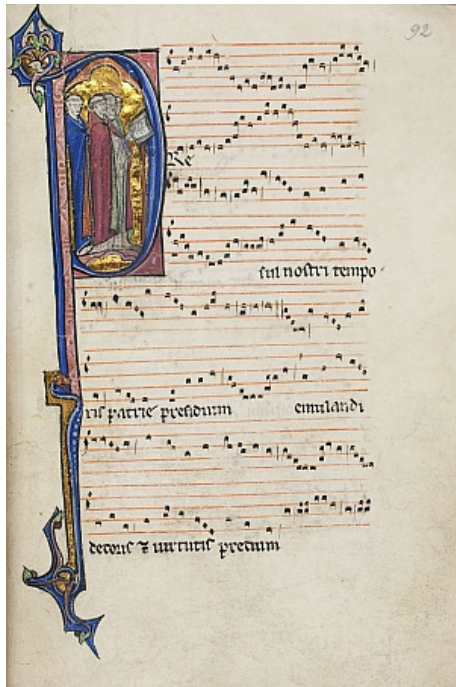 92
PRe
sul nostri tempo
ris patrie presidium emulandi
decoris ⁊ uirtutis precium